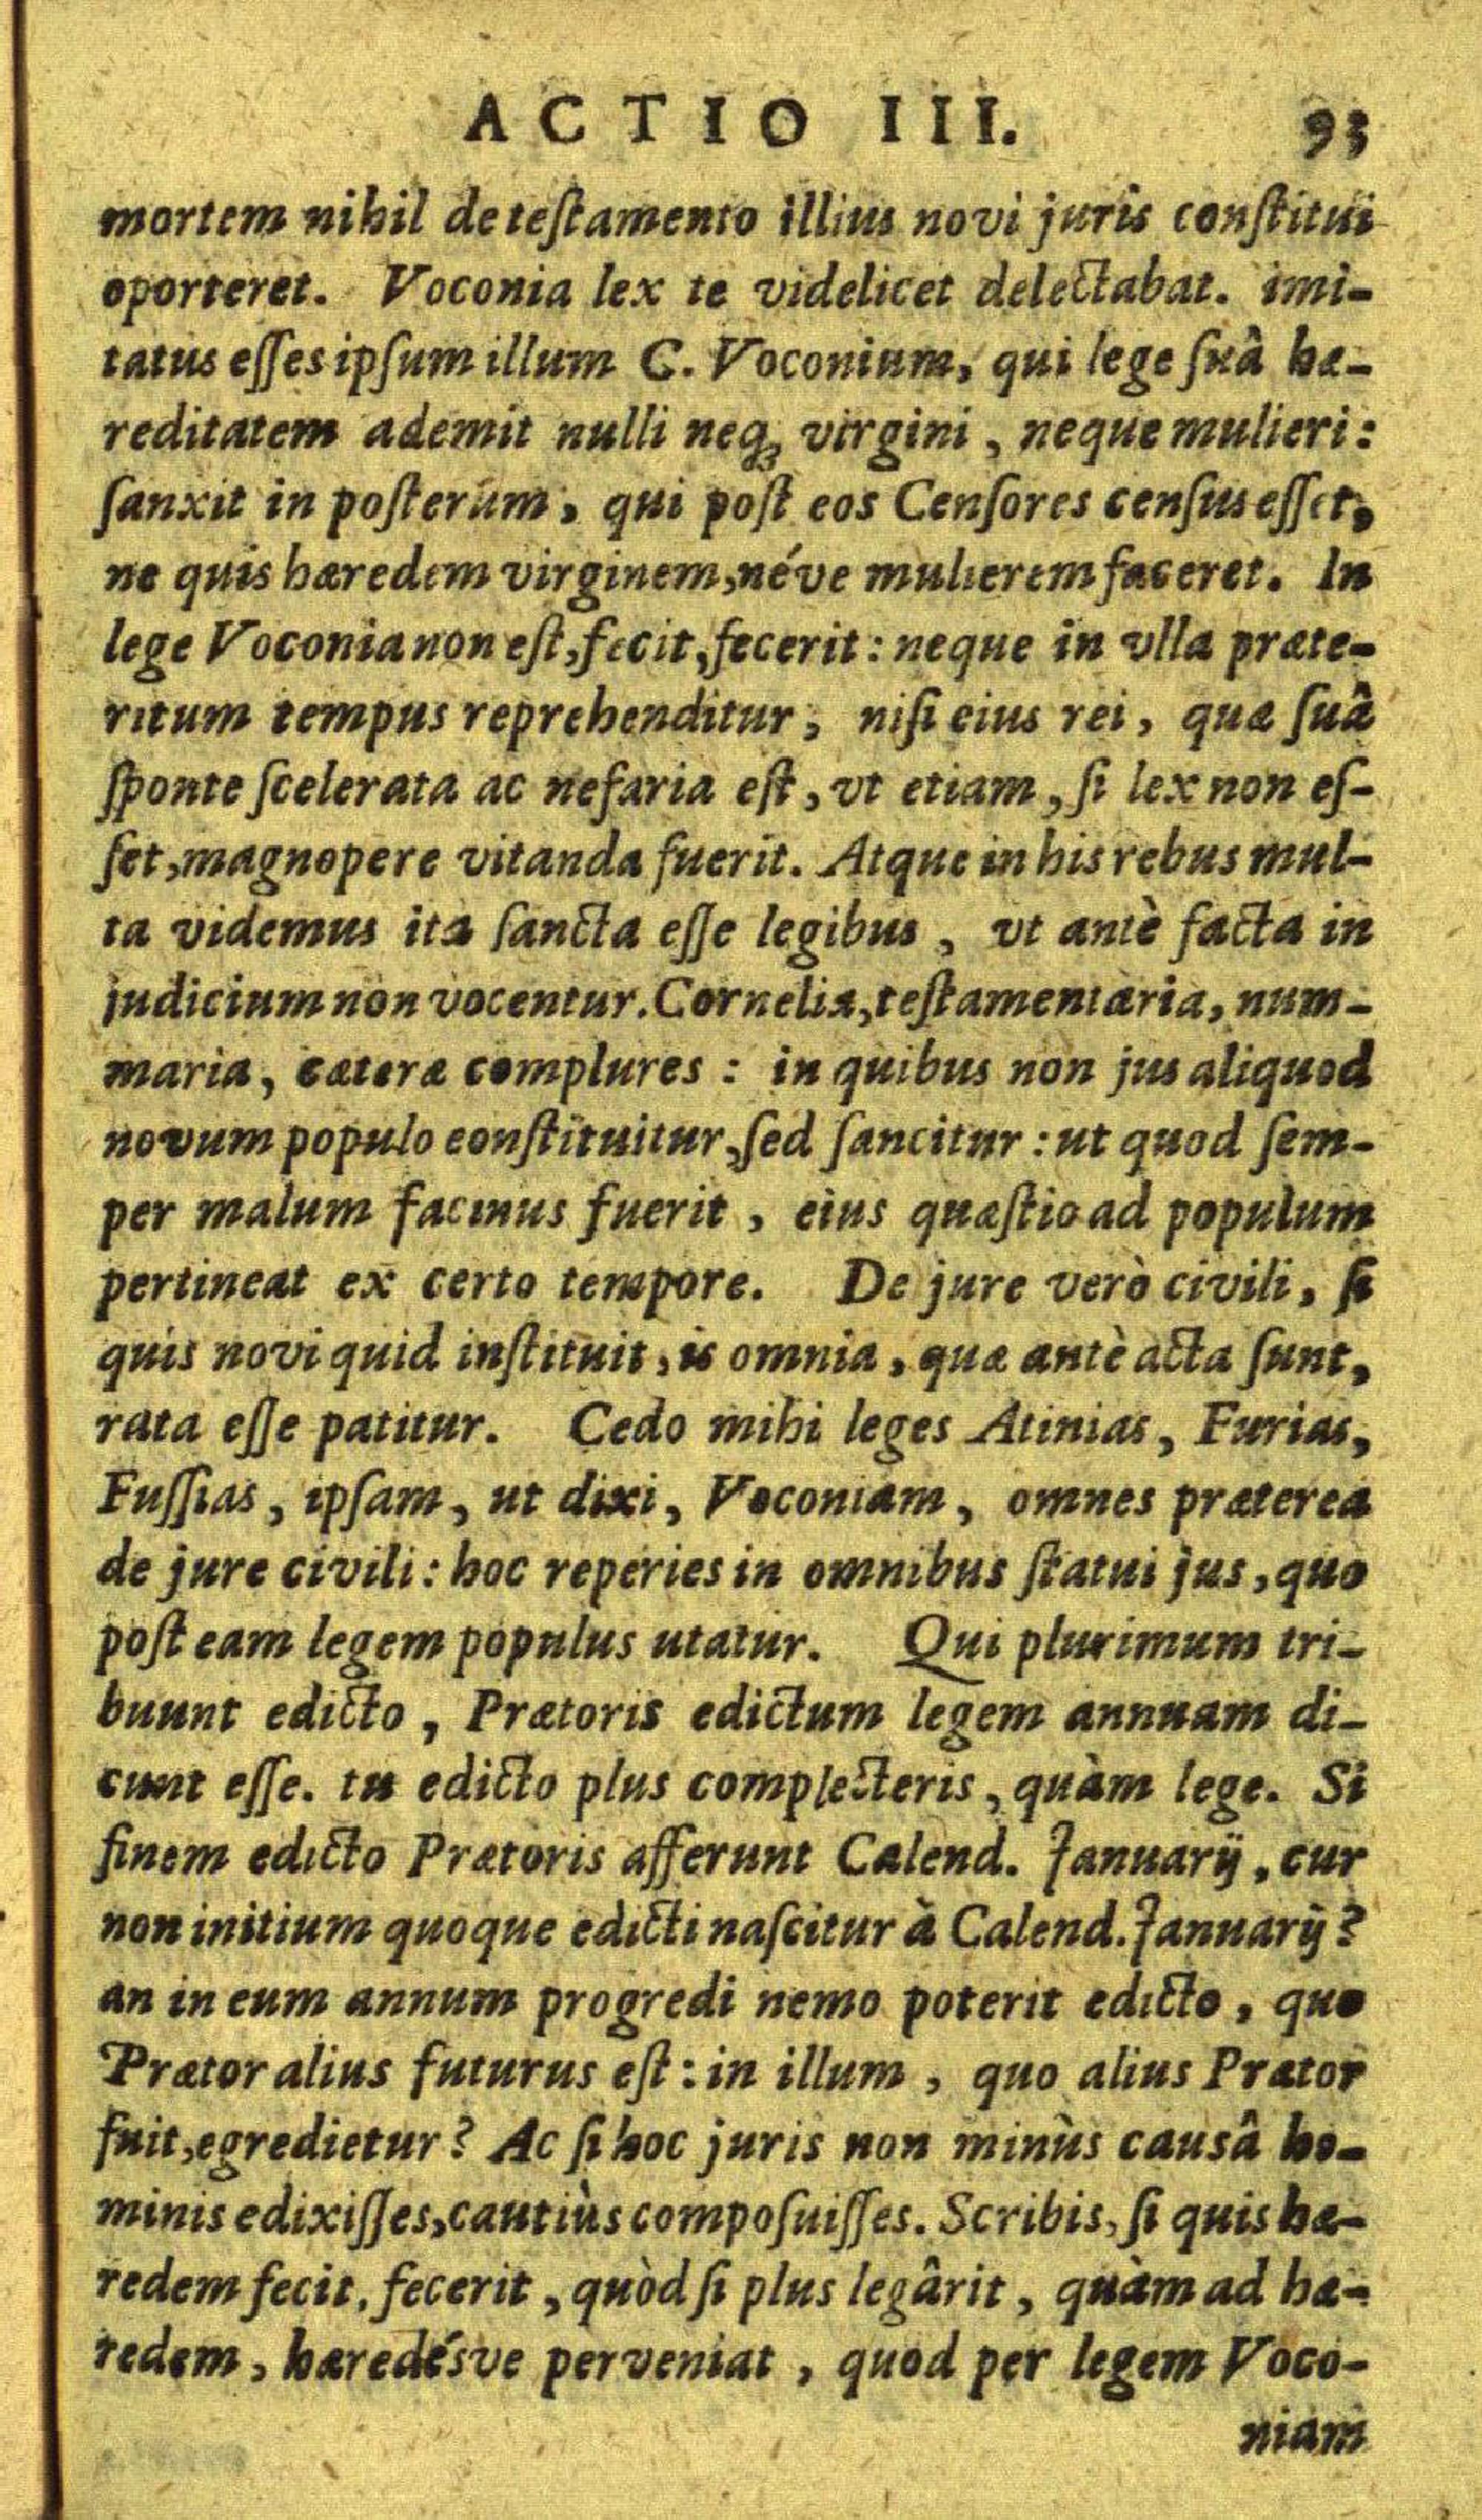 ACTIO III. 93
mortem nihil de teſtamento illius novi juris conſtitui
oporteret. Voconia lex te videlicet delectabat. imi-
tatus eſſes ipſum illum C. Voconium, qui lege ſuâ hæ-
reditatem ademit nulli neq; virgini, neque mulieri:
ſanxit in poſterum, qui poſt eos Cenſores cenſus eſſet,
ne quis hæredem virginem, néve mulierem faceret. In
lege Voconia non eſt, fecit, fecerit: neque in vlla præte-
ritum tempus reprehenditur, niſi eius rei, quæ ſuâ
ſponte ſcelerata ac nefaria eſt, vt etiam, ſi lex non eſ-
ſet, magnopere vitanda fuerit. Atque in his rebus mul-
ta videmus ita ſancta eſſe legibus, vt antè facta in
judicium non vocentur. Cornelia, teſtamentaria, num-
maria, cæteræ complures: in quibus non jus aliquod
novum populo conſtituitur, ſed ſancitur: ut quod ſem-
per malum facinus fuerit, eius quæſtio ad populum
pertineat ex certo tempore. De jure verò civili, ſi
quis novi quid inſtituit, is omnia, quæ antè acta ſunt,
rata eſſe patitur. Cedo mihi leges Atinias, Furias,
Fuſſias, ipſam, ut dixi, Voconiam, omnes præterea
de jure civili: hoc reperies in omnibus ſtatui jus, quo
poſt eam legem populus utatur. Qui plurimum tri-
buunt edicto, Prætoris edictum legem annuam di-
cunt eſſe. tu edicto plus complecteris, quàm lege. Si
finem edicto Prætoris afferunt Calend. Januarij, cur
non initium quoque edicti naſcitur à Calend. Januarij?
an in eum annum progredi nemo poterit edicto, quo
Prætor alius futurus eſt: in illum, quo alius Prætor
fuit, egredietur? Ac ſi hoc juris non minùs causâ ho-
minis edixiſſes, cautiùs compoſuiſſes. Scribis, ſi quis hæ-
redem fecit, fecerit, quòd ſi plus legârit, quàm ad hæ-
redem, hæredésve perveniat, quod per legem Voco-
niam